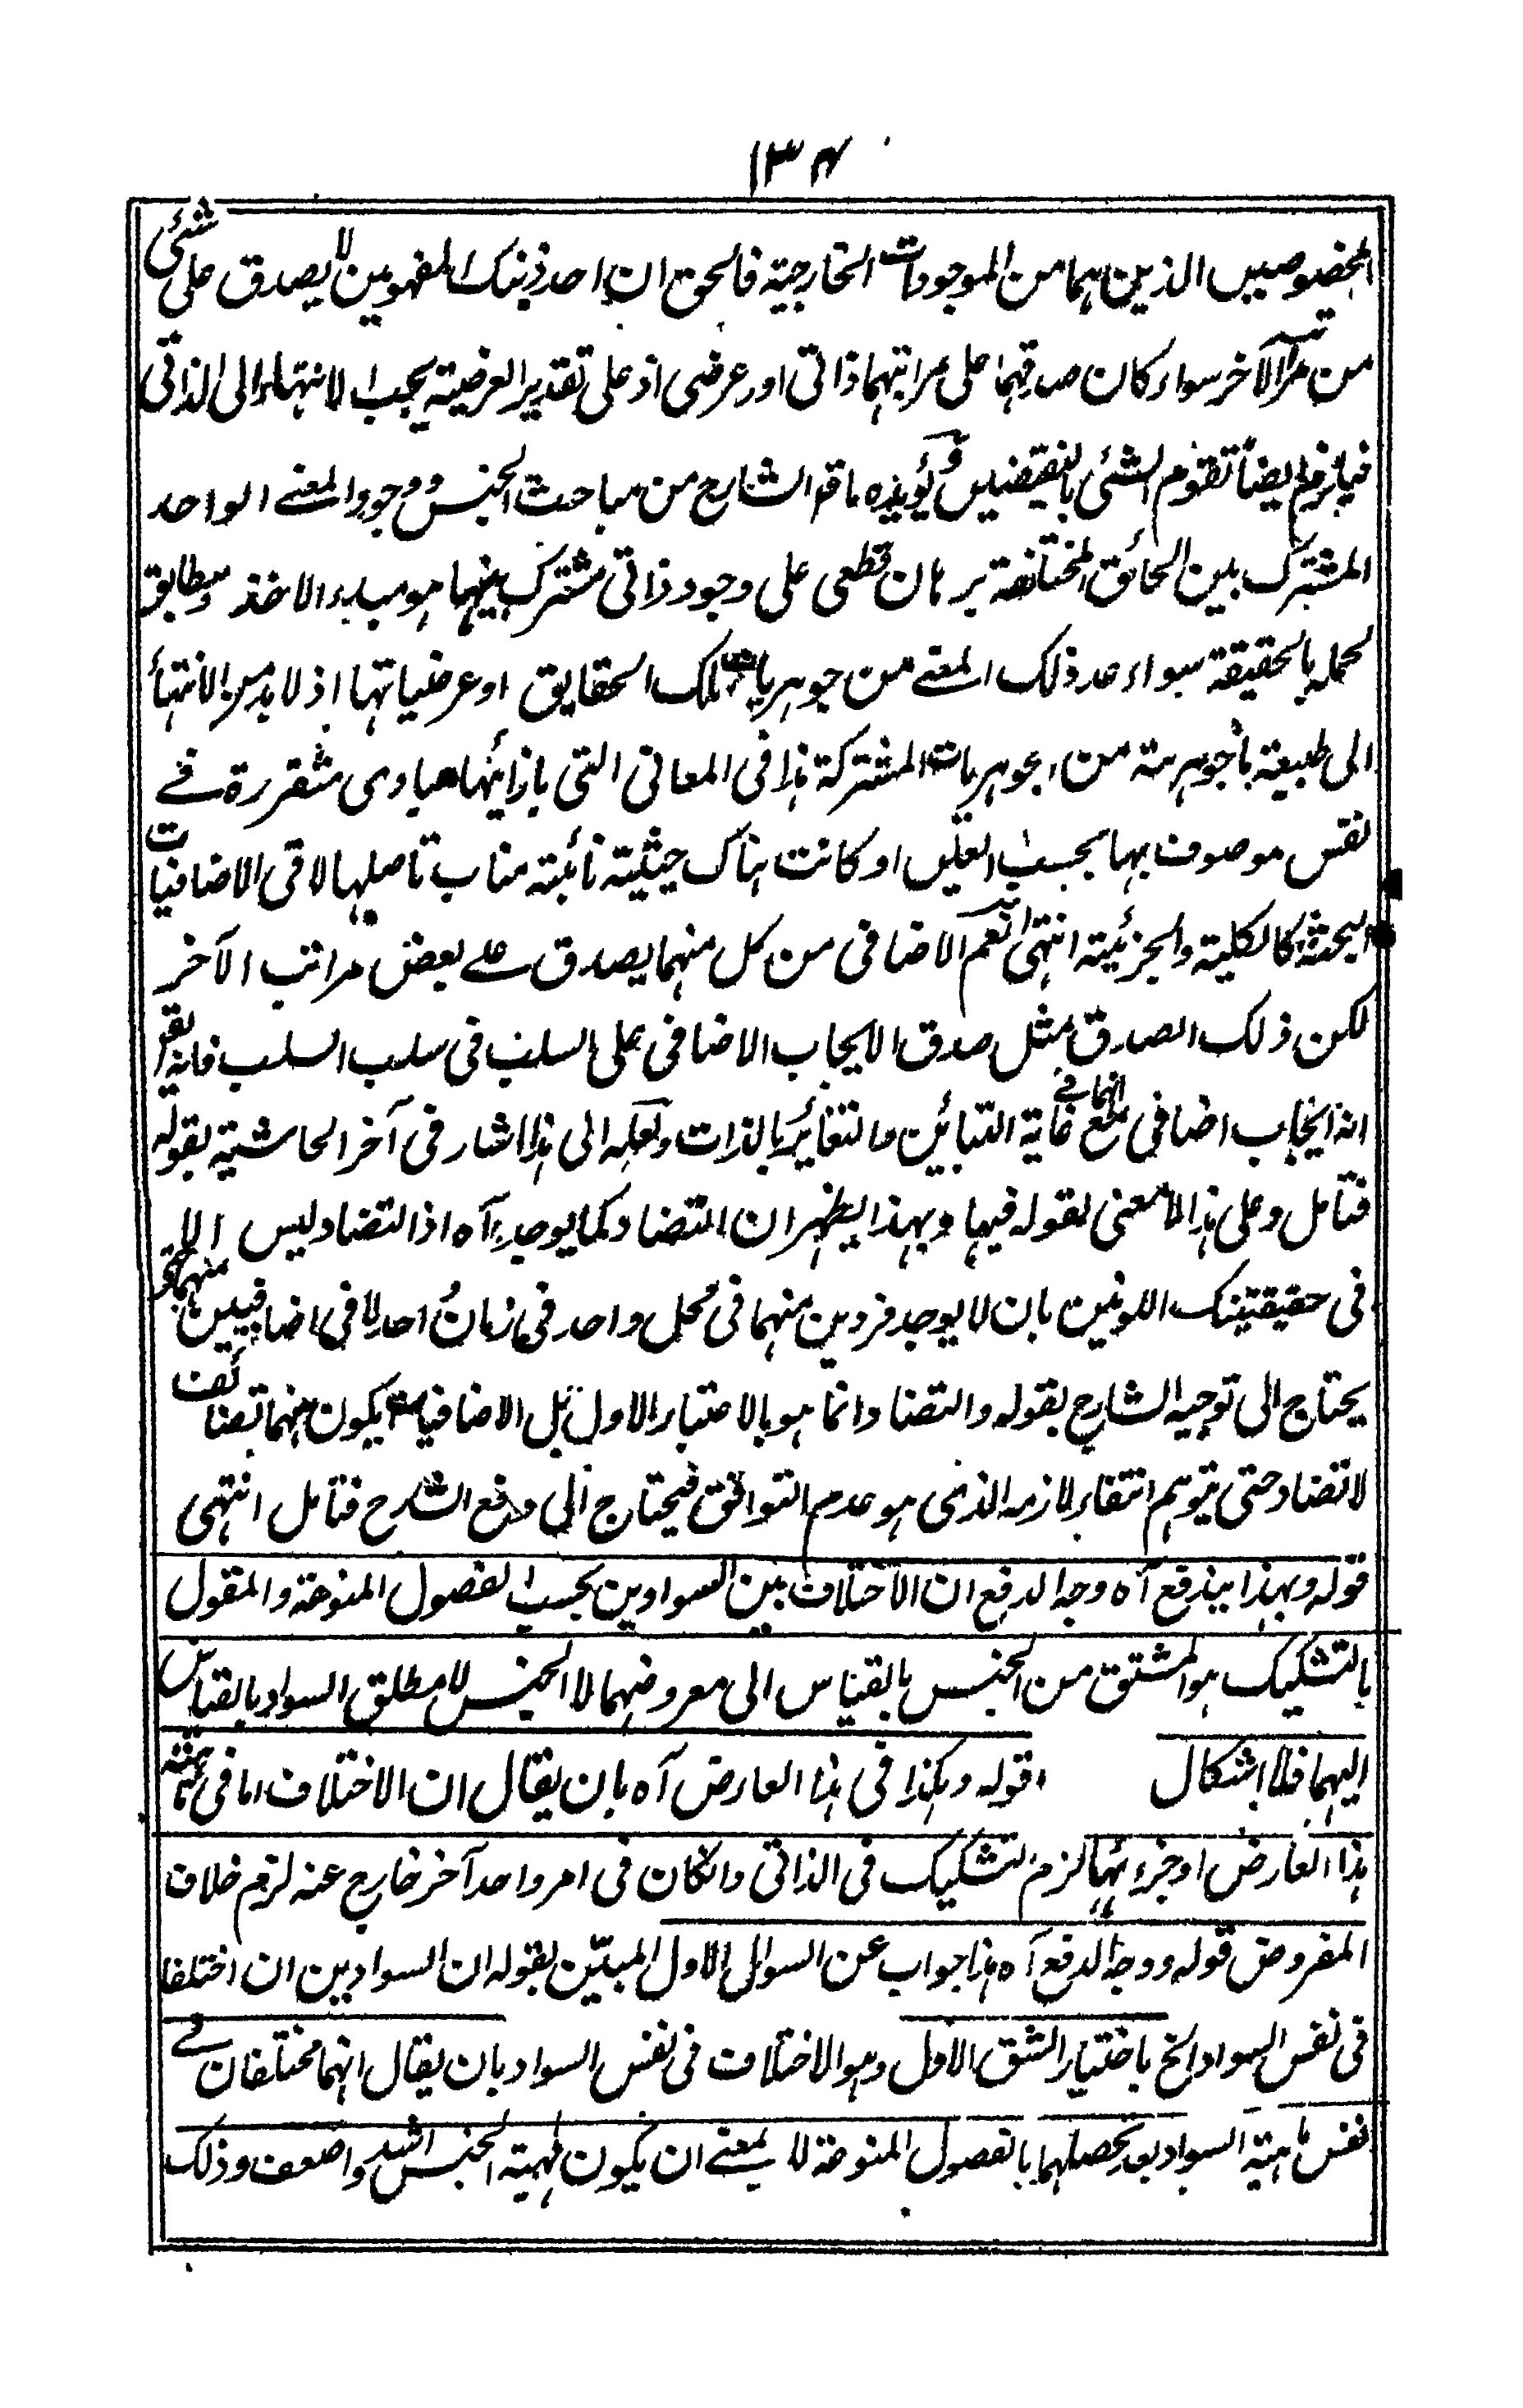 ١٣٤
المخصوصين الذين هما من الموجودات الخارجية فالحق ان احد ذينك المفهومين لا يصدق على شئى
من مراتب الآخر سواء كان صدقهما على مراتبهما ذاتى او عرضى اذ على تقدير العرضية يجب الانتهاء الى الذاتى
فيلزم ايضا تقوم الشئى بالنقيضين ويؤيده ما قد الشارح من مباحث الجنس ووجود المعنے الواحد
المشترك بين الحقائق المختلفة برهان قطعى على وجود ذاتى مشترك بينهما هو مبدء الاخذ ومطابق
لحمله بالحقيقة سواء عد ذلك المعنے من جوهريات تلك الحقايق او عرضياتها اذ لا بد من الانتهاء
الى طبيعة ما جوهرية من الجوهريات المشتركة هذا فى المعانى التى بازائها مبادى متقررة فے
نفس موصوف بها بحسب العين او كانت هناك حيثية نائبة مناب تاصلها لا فى الاضافيات
البحتة كالكلية والجزئية انتهى نعم الاضافى من كل منهما يصدق علے بعض مراتب الآخر
لكن ذلك الصدق مثل صدق الايجاب الاضافى على السلب فى سلب السلب فانه يقر
انه ايجاب اضافى مع انهما فے غاية التبائن والتغائر بالذات ولعله الى هذا اشار فى آخر الحاشية بقوله
فتامل وعلى هذا لا معنى لقوله فيها وبهذا يظهر ان التضاد كما يوجد آه اذ التضاد ليس الا
فى حقيقتينك اللونين بان لا يوجد فردين منهما فى محل واحد فى زمان احد لا فى اضافيين منهما حتى
يحتاج الى توجيه الشارح بقوله والتضاد انما هو بالاعتبار الاول بل الاضافيات يكون بينهما تضائف
لا تضاد حتى يتوهم انتفاء لازمه الذى هو عدم التوافق فيحتاج الى دفع الشارح فتامل انتهى
قوله وبهذا يندفع آه وجه الدفع ان الاختلاف بين السوادين بحسب الفصول المنوعة والمقول
بالتشكيك هو المشتق من الجنس بالقياس الى معروضهما لا الجنس لا مطلق السواد بالقياس
اليهما فلا اشكال قوله وهكذا فى هذا العارض آه بان يقال ان الاختلاف اما فى ماهية
هذا العارض او جزءيها لزم التشكيك فى الذاتى وان كان فى امر واحد آخر خارج عنه لزم خلاف
المفروض قوله ووجه الدفع آه هذا جواب عن السوال الاول المبين بقوله ان السوادين ان اختلفا
فى نفس السواد الخ باختيار الشق الاول وهو الاختلاف فى نفس السواد بان يقال انهما مختلفان فے
نفس ماهية السواد بعد تحصلهما بالفصول المنوعة لا بمعنے ان يكون ماهية الجنس اشد واضعف وذلك